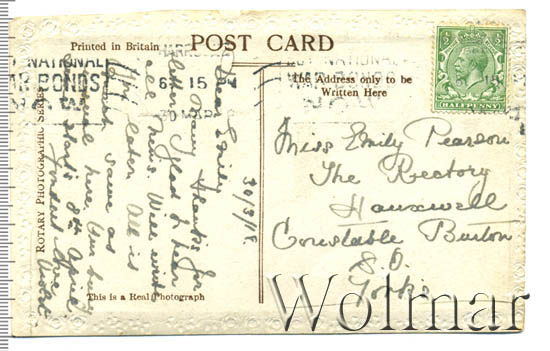 Printed in Britain
POST CARD
The Address only to be
Written Here
NATIONAL
WAR BONDS
6 15 PM
30 MAR
HALFPENNY
Miss Emily Pearson
The Rectory
Hauxwell
Constable Burton
S.O.
Yorks
30/3/18
Dear Emily
Many thanks for
letter glad to hear
all news. Will write
later. All is
much same as
here. Am busy
8th April
Fondest love
ROTARY PHOTOGRAPHIC SERIES
This is a Real Photograph
Wolmar